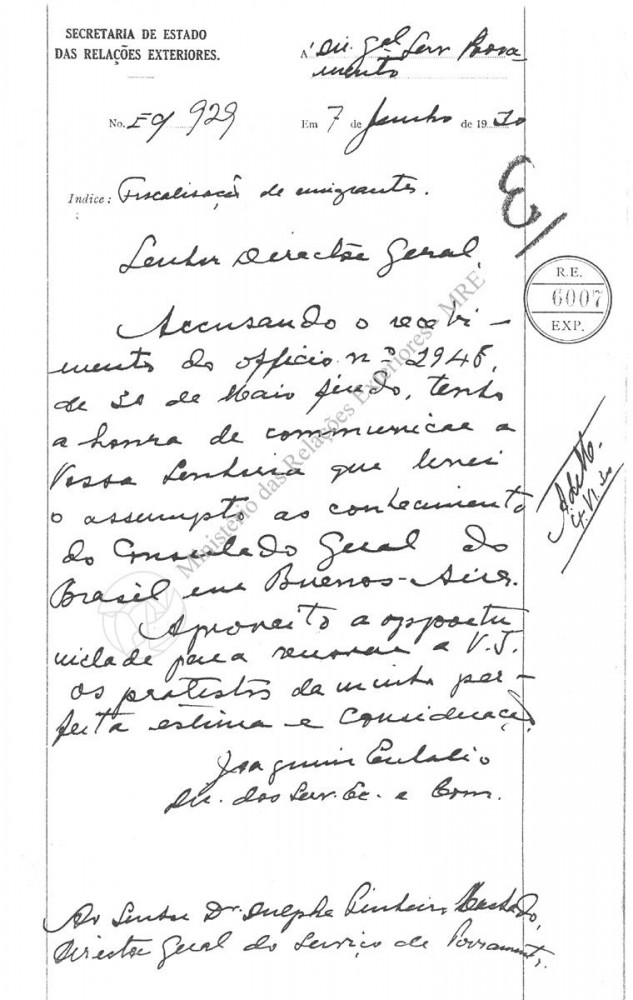 SECRETARIA DE ESTADO
DAS RELAÇÕES EXTERIORES.
A' Dir. Gal. Serv. Povoa-
mento
No. EC/ 929
Em 7 de Junho de 1930
Indice: Fiscalisação de emigrantes.
3/
Senhor Director Geral,
R.E.
6007
EXP.
Accusando o recebi-
mento do officio nº 2945,
de 30 de Maio findo, tenho
a honra de communicar a
Vossa Senhoria que levei
o assumpto ao conhecimento
do Consulado Geral do
Brasil em Buenos-Aires.
Aproveito a opportu
nidade para renovar a V.S.
os protestos da minha per-
feita estima e consideração.
Joaquim Eulalio
Dir. dos Serv. Ec. e Com.
VI. 30
Ao Senhor Dr. Dulphe Pinheiro Machado,
Director Geral do Serviço de Povoamento.
Ministério das Relações Exteriores - MRE